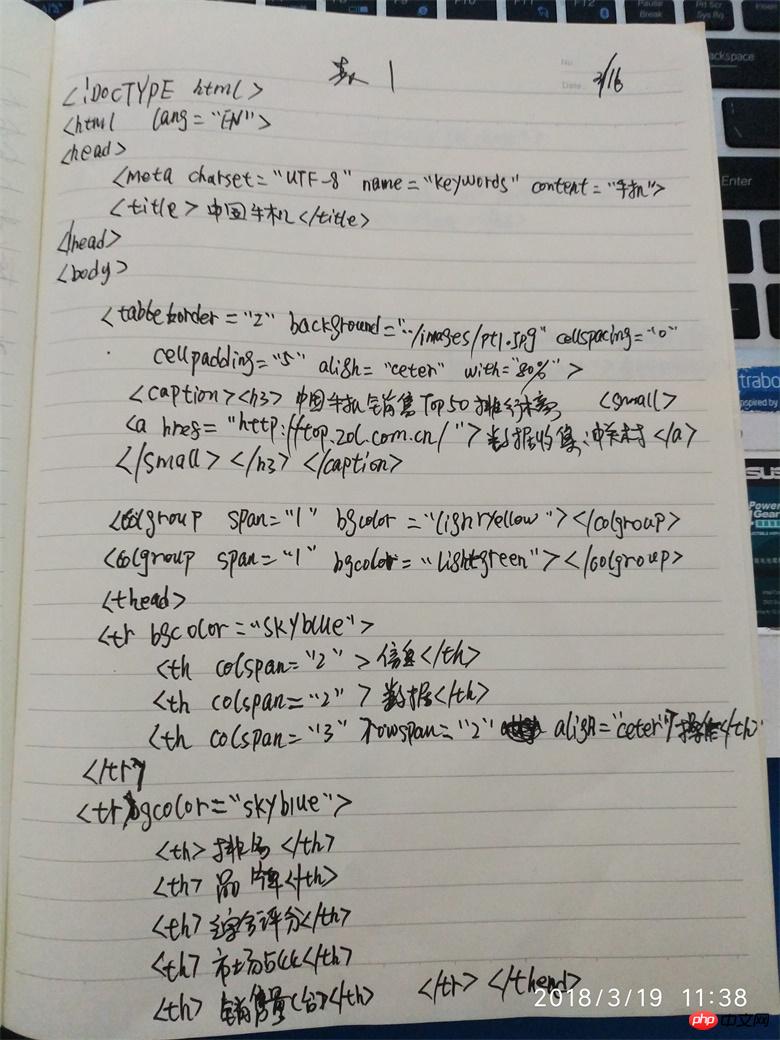 表 1
No.
Date.
3/16
<!DOCTYPE html>
<html lang="EN">
<head>
<meta charset="UTF-8" name="keywords" content="手机">
<title>中国手机</title>
</head>
<body>
<table border="2" background="../images/pt1.jpg" cellspacing="0"
cellpadding="5" aligh="ceter" with="80%">
<caption><h3>中国手机销售Top50排行榜 <small>
<a href="http://top.zol.com.cn/">数据收集:中关村</a>
</small></h3></caption>
<colgroup span="1" bgcolor="lighryellow"></colgroup>
<colgroup span="1" bgcolor="lightgreen"></colgroup>
<thead>
<tr bgcolor="skyblue">
<th colspan="2">信息</th>
<th colspan="2">数据</th>
<th colspan="3" rowspan="2" aligh="ceter">操作</th>
</tr>
<tr bgcolor="skyblue">
<th>排名</th>
<th>品牌</th>
<th>综合评分</th>
<th>市场占比</th>
<th>销售量(台)</th> </tr></thead>
2018/3/19 11:38
php 中文网
Pause
Break
Prt Scr
Sys Rq
Backspace
Enter
trabo
inspired by
SUS
Power
Gear